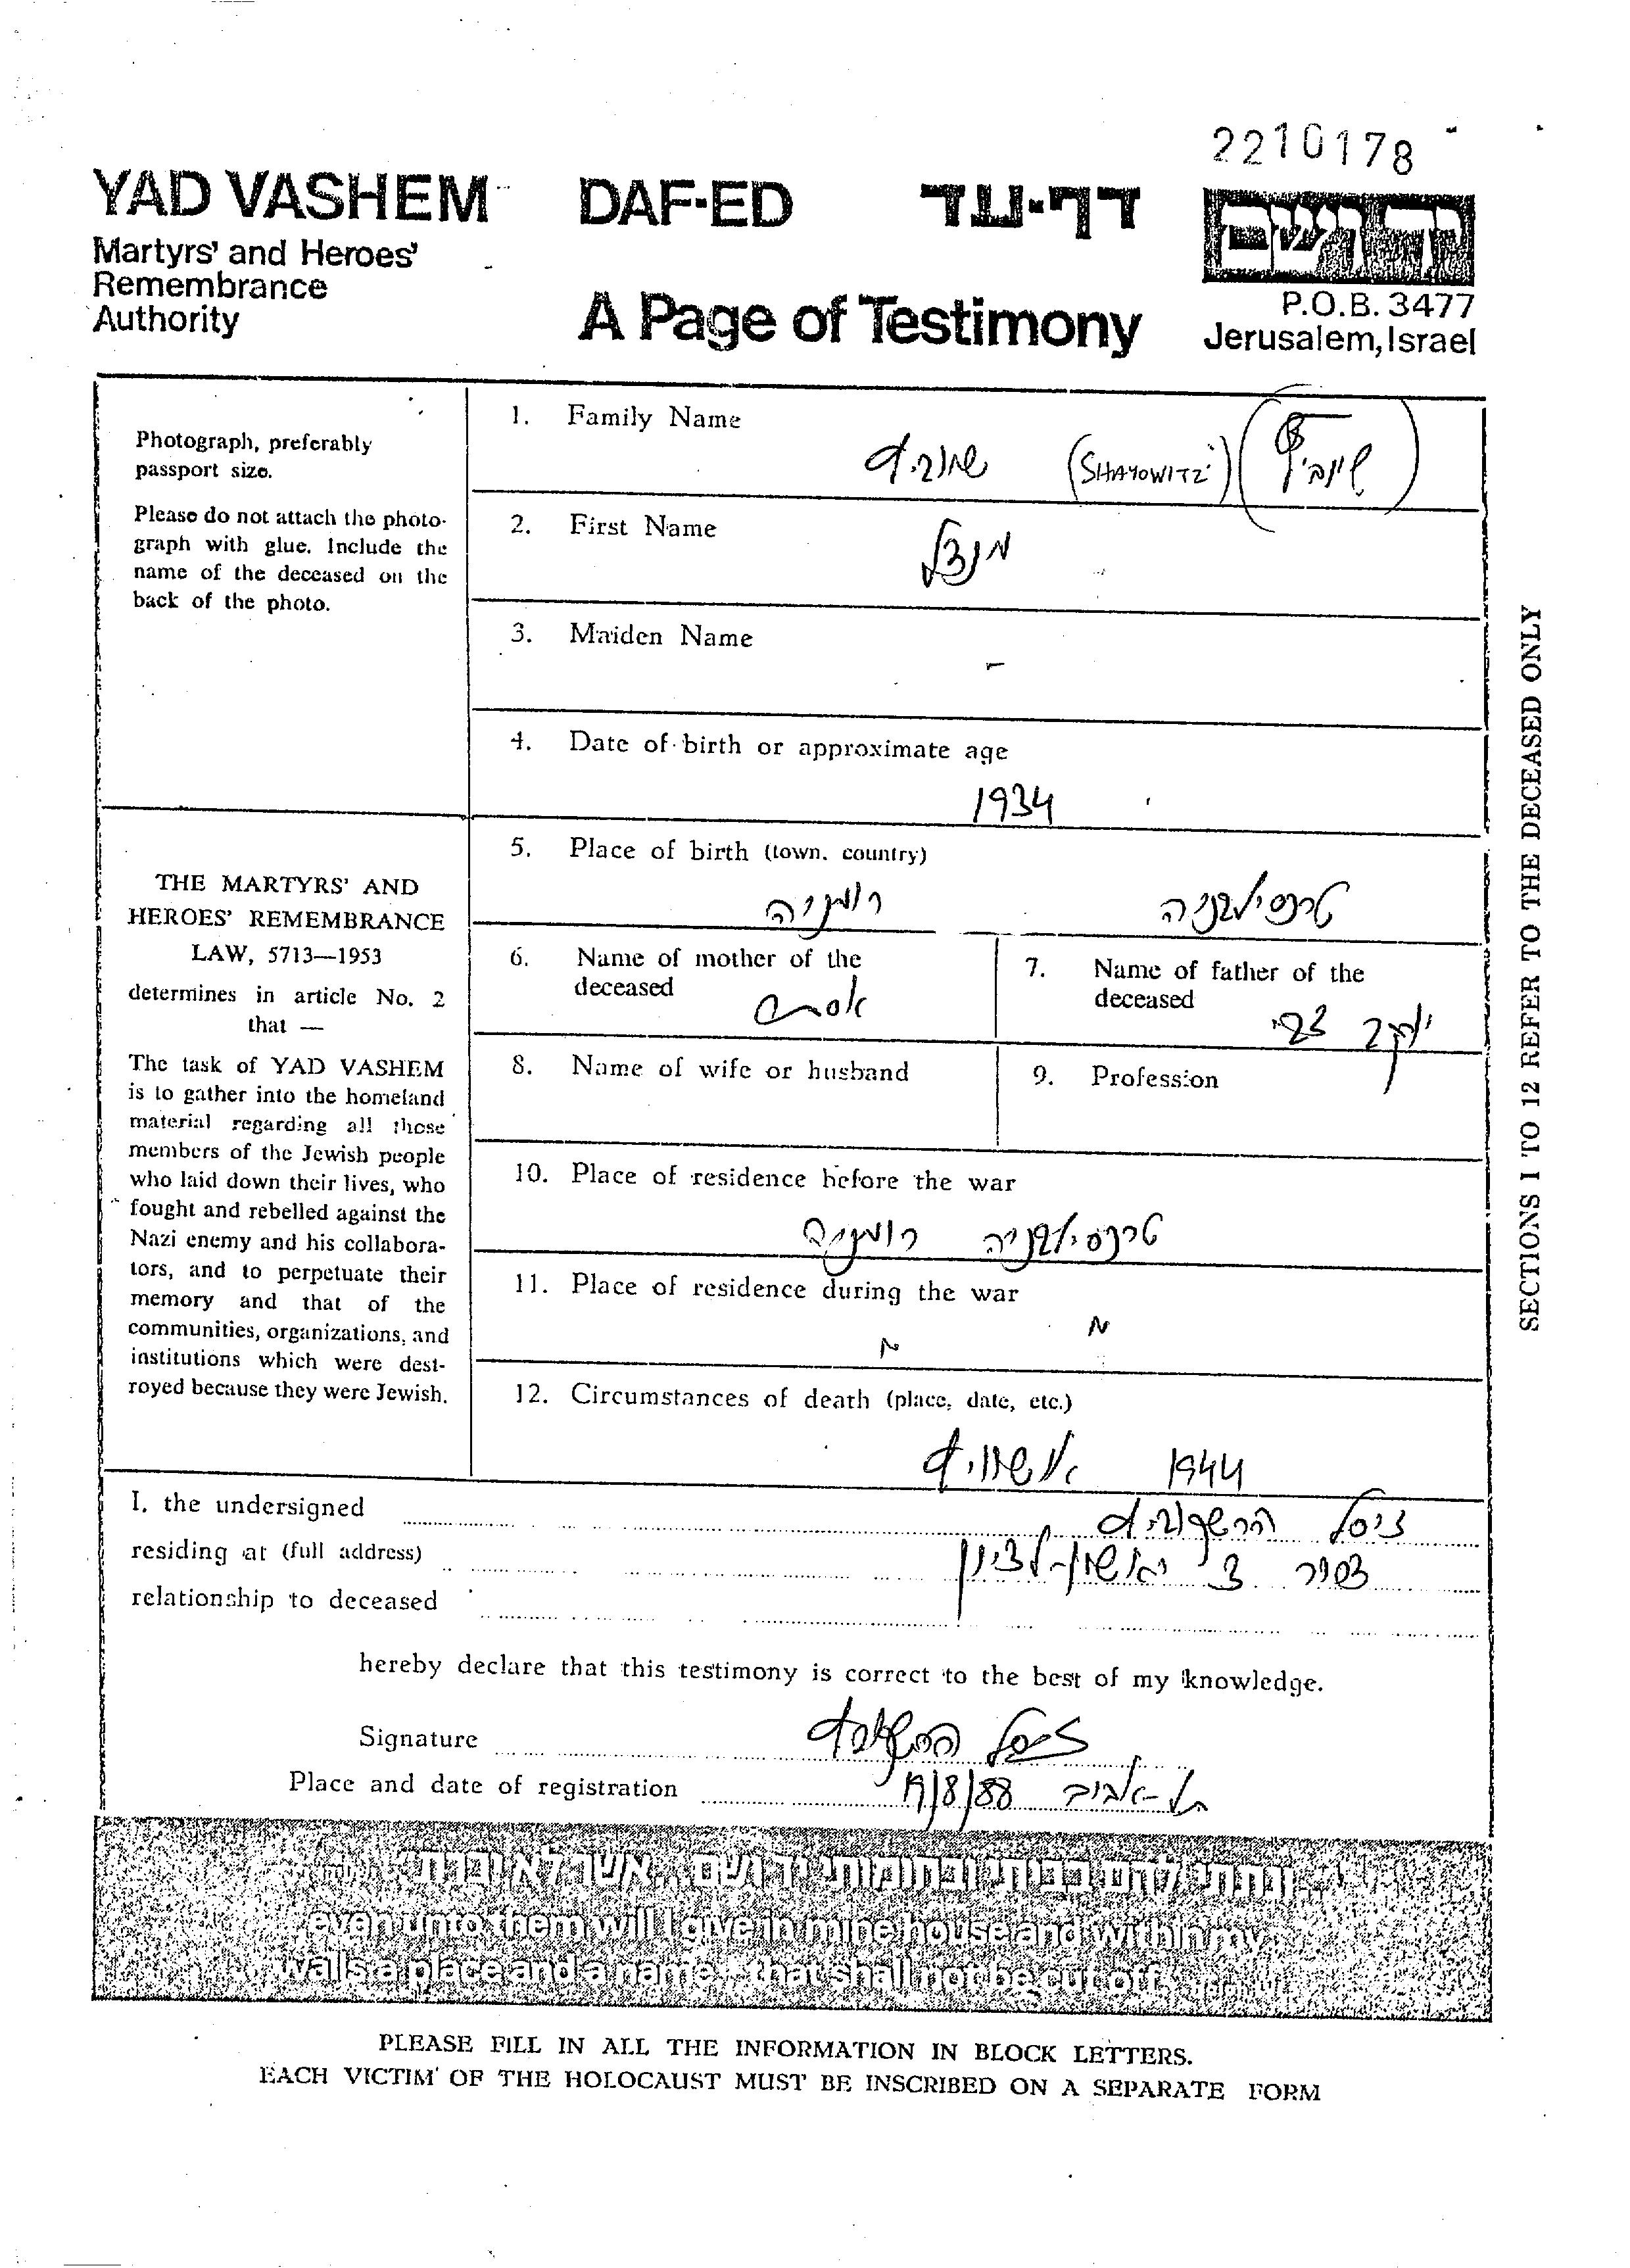 2210178
YAD VASHEM DAF-ED דף-עד
יד ושם
Martyrs' and Heroes'
Remembrance
Authority
A Page of Testimony
P.O.B. 3477
Jerusalem, Israel
Photograph, preferably
passport size.
Please do not attach the photo-
graph with glue. Include the
name of the deceased on the
back of the photo.
THE MARTYRS' AND
HEROES' REMEMBRANCE
LAW, 5713—1953
determines in article No. 2
that —
The task of YAD VASHEM
is to gather into the homeland
material regarding all those
members of the Jewish people
who laid down their lives, who
fought and rebelled against the
Nazi enemy and his collabora-
tors, and to perpetuate their
memory and that of the
communities, organizations, and
institutions which were dest-
royed because they were Jewish.
1. Family Name
(SHAYOWITZ)
2. First Name
מנדל
3. Maiden Name
-
4. Date of birth or approximate age
1934
5. Place of birth (town, country)
טרנסילבניה רומניה
6. Name of mother of the
deceased
אסתר
7. Name of father of the
deceased
יעקב צבי
8. Name of wife or husband
9. Profession
10. Place of residence before the war
טרנסילבניה רומניה
11. Place of residence during the war
12. Circumstances of death (place, date, etc.)
1944 אושוויץ
I, the undersigned
residing at (full address)
ראשון-לציון
relationship to deceased
hereby declare that this testimony is correct to the best of my knowledge.
Signature
Place and date of registration
תל-אביב 19/8/88
ונתתי להם בביתי ובחומותי יד ושם... אשר לא יכרת
even unto them will I give in mine house and within my
walls a place and a name... that shall not be cut off
PLEASE FILL IN ALL THE INFORMATION IN BLOCK LETTERS.
EACH VICTIM OF THE HOLOCAUST MUST BE INSCRIBED ON A SEPARATE FORM
SECTIONS 1 TO 12 REFER TO THE DECEASED ONLY